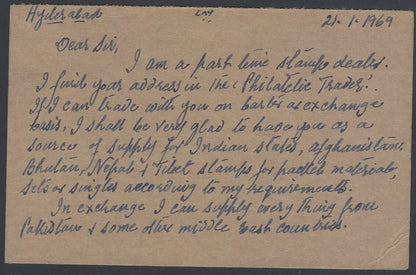 Hyderabad 21.1.1969
Dear Sir,
I am a part time stamp dealer.
I find your address in the "Philatelic Trader".
If I can trade with you on barter as exchange
basis, I shall be very glad to have you as a
source of supply for Indian states, Afghanistan,
Bhutan, Nepal & Tibet stamps for packet material,
sets or singles according to my requirements.
In exchange I can supply every thing from
Pakistan & some other middle East countries.